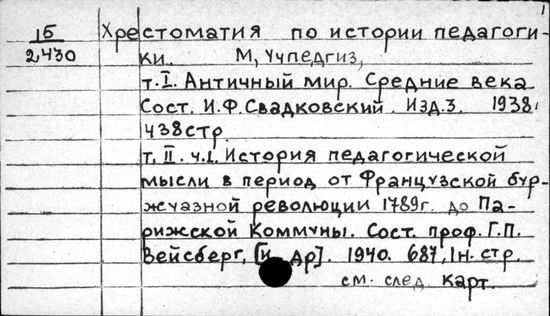 1
15 Хрестоматия по истории педагоги-
2430 ки. М, Учпедгиз,
т.I. Античный мир. Средние века
Сост. И.Ф. Свадковский. Изд.3. 1938.
438 стр.
т. II. ч.1. История педагогической
мысли в период от Французской бур-
жуазной революции 1789г. до Па-
рижской Коммуны. Сост. проф. Г.П.
Вейсберг, [и др]. 1940. 687, 1н. стр.
см. след. карт.